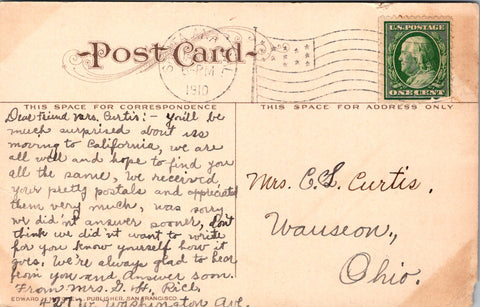 Post Card
U.S. POSTAGE
ONE CENT
1910
THIS SPACE FOR CORRESPONDENCE
THIS SPACE FOR ADDRESS ONLY
Dear Friend Mrs. Curtis:- You'll be
much surprised about us
moving to California, we are
all well and hope to find you
all the same, we received
your pretty postals and appreciated
them very much, was sorry
we did'nt answer sooner, don't
think we did'nt want to write
for you know yourself how it
goes. We're always glad to hear
from you and answer soon.
From Mrs. G. H. Rice.
Washington Ave.
Mrs. C. L. Curtis,
Wauseon,
Ohio.
EDWARD H. PUBLISHER, SAN FRANCISCO